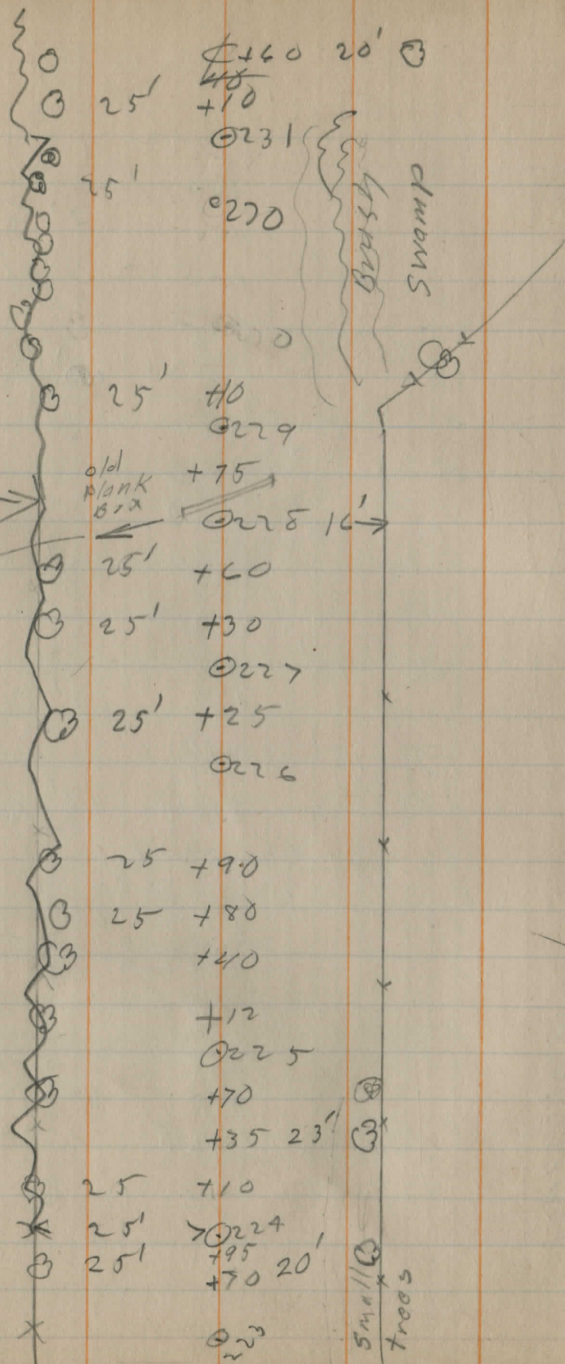 +60 20'
40
25' +10
231
25'
230
Swamp
Brush
25' +10
229
old
Plank
Box
+75
228 16'
25' +60
25' +30
227
25' +25
226
25 +90
25 +80
+40
+12
225
+70
+35 23'
25 +10
25' 224
+95
25' +70 20'
223
Small
trees